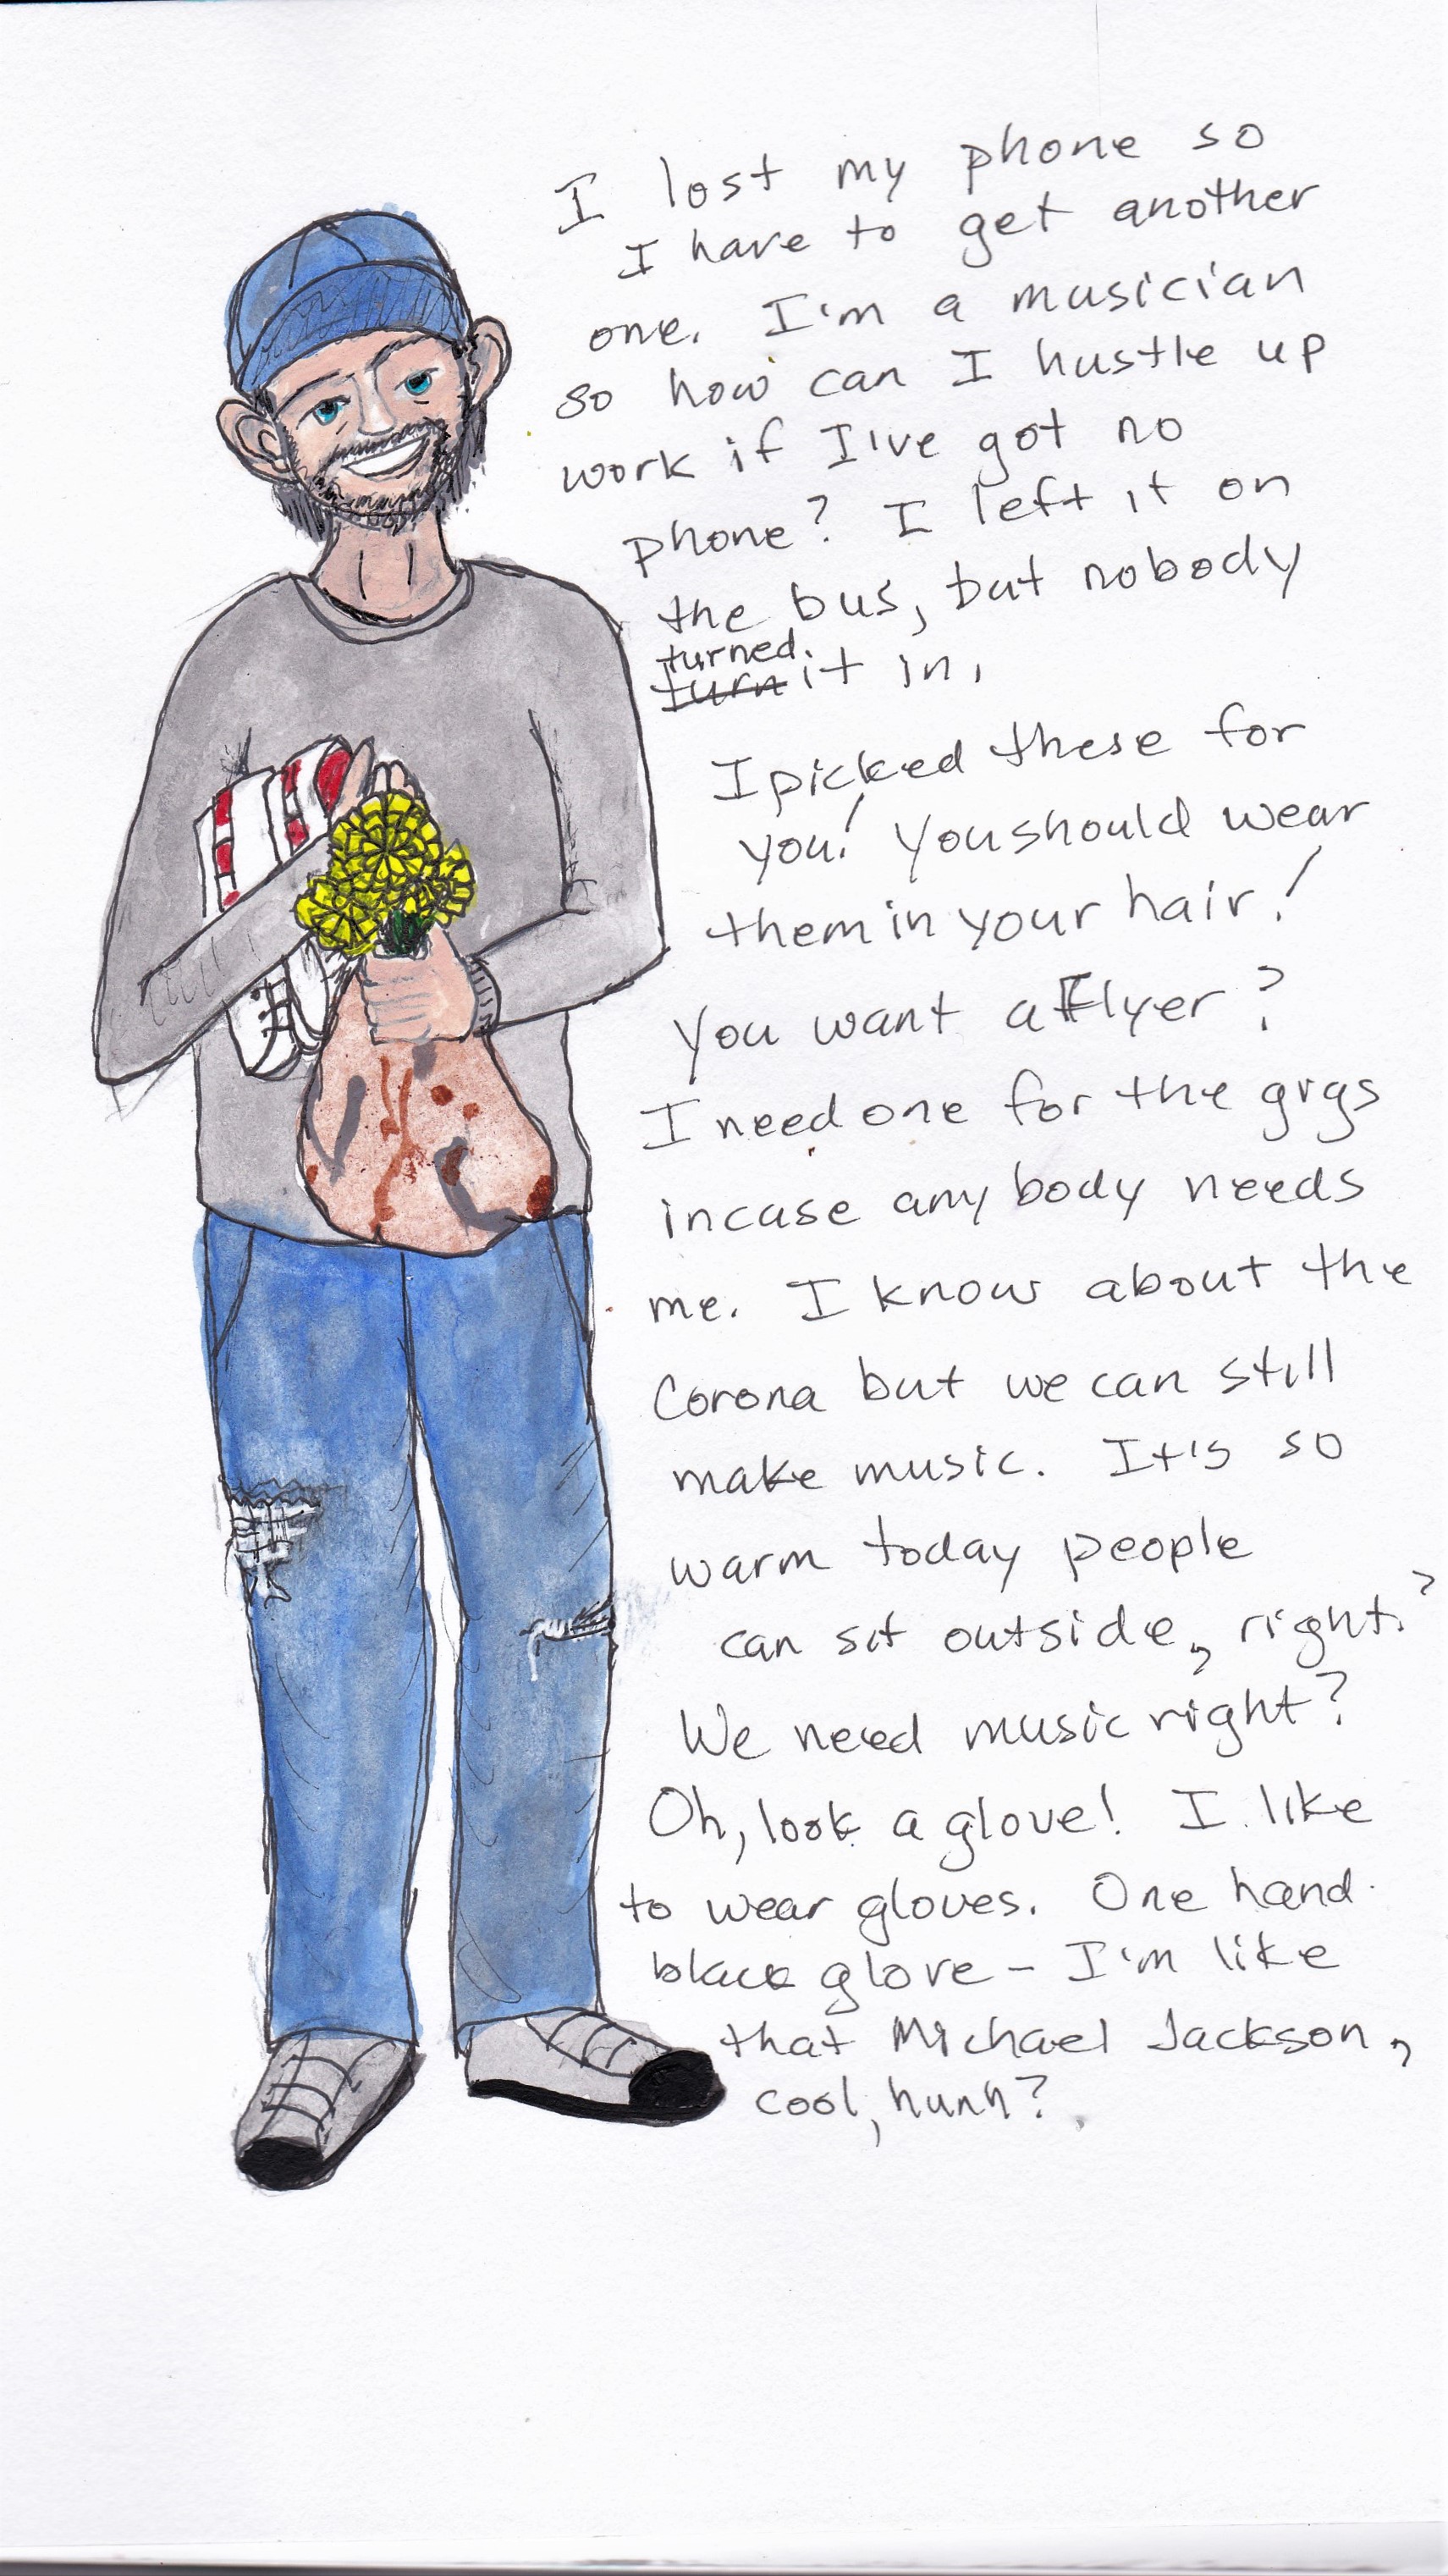 I lost my phone so
I have to get another
one. I'm a musician
so how can I hustle up
work if I've got no
phone? I left it on
the bus, but nobody
turned
turn it in,
I picked these for
you! You should wear
them in your hair!
You want a Flyer?
I need one for the gigs
incase anybody needs
me. I know about the
Corona but we can still
make music. It's so
warm today people
can sit outside, right?
We need music right?
Oh, look a glove! I like
to wear gloves. One hand
black glove - I'm like
that Michael Jackson,
cool, hunh?